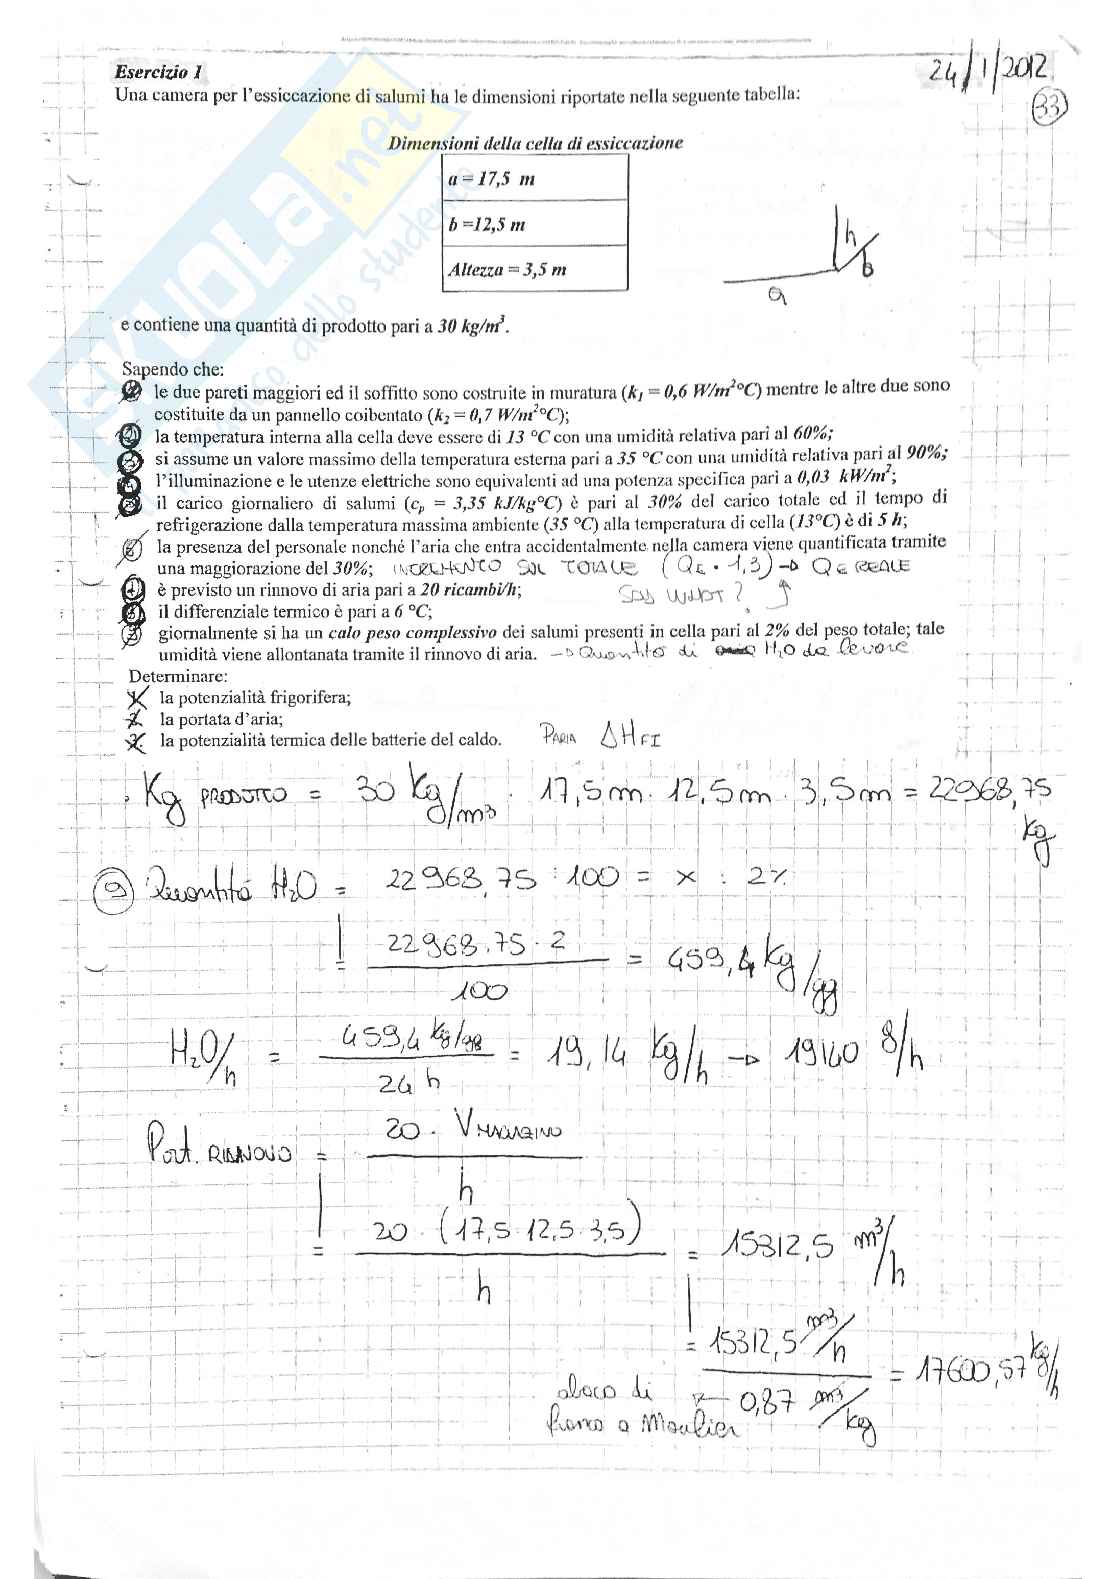 24/1/2012
33
Esercizio 1
Una camera per l'essiccazione di salumi ha le dimensioni riportate nella seguente tabella:
Dimensioni della cella di essiccazione
a = 17,5 m
b =12,5 m
Altezza = 3,5 m
h
b
a
e contiene una quantità di prodotto pari a 30 kg/m³.
Sapendo che:
le due pareti maggiori ed il soffitto sono costruite in muratura (k₁ = 0,6 W/m²°C) mentre le altre due sono
costituite da un pannello coibentato (k₂ = 0,7 W/m²°C);
la temperatura interna alla cella deve essere di 13 °C con una umidità relativa pari al 60%;
si assume un valore massimo della temperatura esterna pari a 35 °C con una umidità relativa pari al 90%;
l'illuminazione e le utenze elettriche sono equivalenti ad una potenza specifica pari a 0,03 kW/m²;
il carico giornaliero di salumi (cp = 3,35 kJ/kg°C) è pari al 30% del carico totale ed il tempo di
refrigerazione dalla temperatura massima ambiente (35 °C) alla temperatura di cella (13°C) è di 5 h;
la presenza del personale nonché l'aria che entra accidentalmente nella camera viene quantificata tramite
una maggiorazione del 30%; INCREMENTO SUL TOTALE (QE · 1,3) → QE REALE
è previsto un rinnovo di aria pari a 20 ricambi/h;
il differenziale termico è pari a 6 °C;
giornalmente si ha un calo peso complessivo dei salumi presenti in cella pari al 2% del peso totale; tale
umidità viene allontanata tramite il rinnovo di aria. → Quantità di H₂O da levare
Determinare:
1. la potenzialità frigorifera;
2. la portata d'aria;
3. la potenzialità termica delle batterie del caldo. PARIA ΔHFI
Kg PRODOTTO = 30 Kg/m³ · 17,5m · 12,5m · 3,5m = 22968,75 Kg
9 Quantità H₂O = 22968,75 : 100 = x : 2%
= 22968.75 · 2 / 100 = 459,4 Kg/gg
H₂O/h = 459,4 Kg/gg / 24 h = 19,14 Kg/h → 19140 g/h
Port. RINNOVO = 20 · V MAGAZZINO / h
= 20 · (17,5 · 12,5 · 3,5) / h = 15312,5 m³/h
= 15312,5 m³/h / 0,87 m³/kg = 17600,57 Kg/h
abaco di
fianco a Moulier
SKUOLA.net